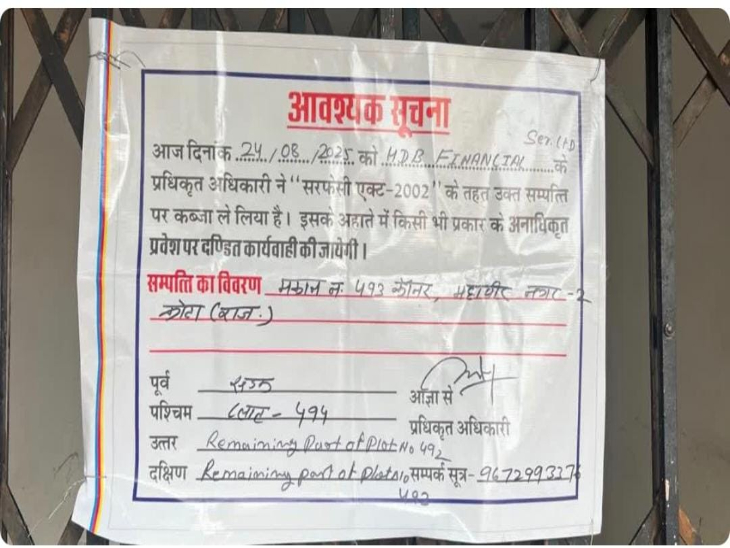 आवश्यक सूचना
Ser. LTD
आज दिनांक 24/08/2025 को HDB FINANCIAL के
प्रधिकृत अधिकारी ने "सरफेसी एक्ट-2002" के तहत उक्त सम्पत्ति
पर कब्जा ले लिया है। इसके अहाते में किसी भी प्रकार के अनाधिकृत
प्रवेश पर दण्डित कार्यवाही की जायेगी।
सम्पत्ति का विवरण मकान न. 493 कॉर्नर, महावीर नगर-2
कोटा (राज.)
पूर्व सड़क
पश्चिम प्लाट-494
उत्तर Remaining Part of Plot No 492
दक्षिण Remaining part of Plot No
492
आज्ञा से
प्रधिकृत अधिकारी
सम्पर्क सूत्र- 9672993376